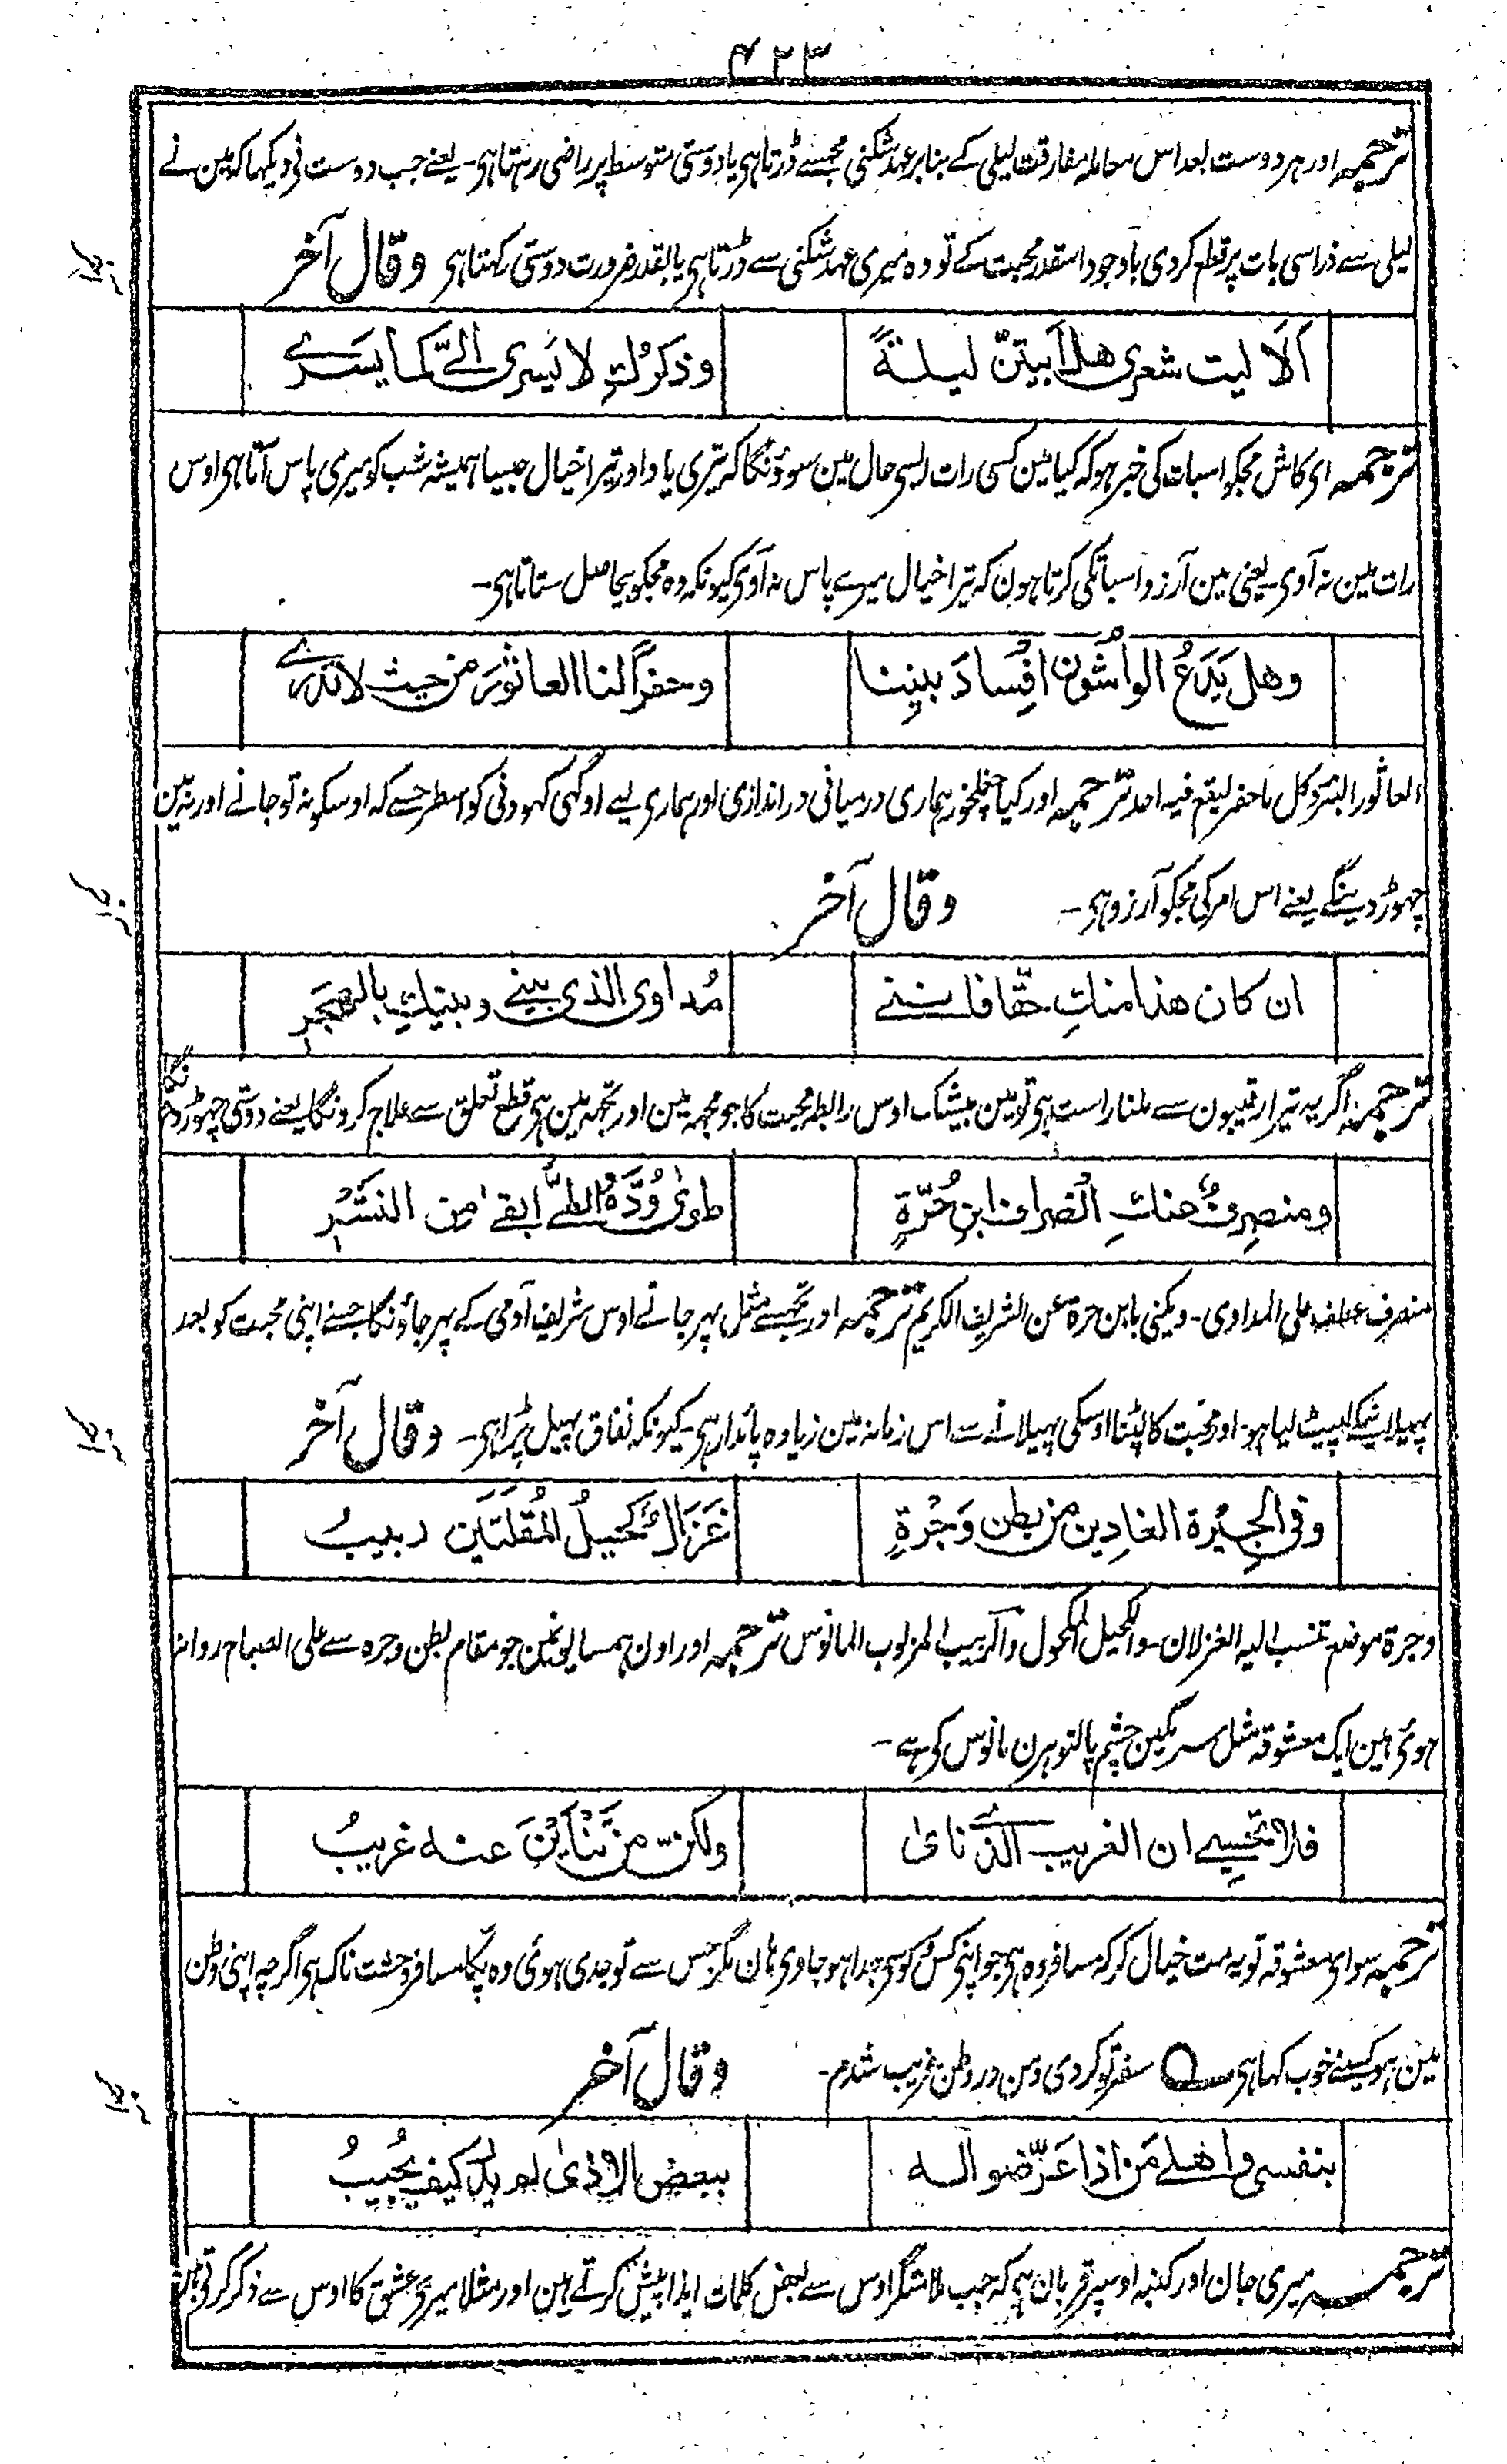 ۴۲۳
ترجمہ اور ہر دوست بعد اس معاملہ مفارقت لیلی کے بنا بر عہد شکنی مجسے ڈرتا ہی یا دوستی متوسط پر راضی رہتا ہی۔ یعنے جب دوست نی دیکھا کہ مین نے
لیلی سے ذرا سی بات پر قطع کر دی باوجود اسقدر محبت کے تو وہ میری عہد شکنی سے ڈرتا ہی یا بقدر ضرورت دوستی رکھتا ہی وقال آخر
اَلَا لیت شعری هل اَبیتنّ لیلةً وذکرُكِ لا یَسری الیَّ کما یَسَرے
ترجمہ ای کاش مجکو اسبات کی خبر ہو کہ کیا مین کسی رات ایسی حال مین سوؤنگا کہ تیری یاد اور تیرا خیال جیسا ہمیشہ شب کو میری پاس آتا ہی اوس
رات مین نہ آوی۔ یعنی مین آرزو اسباتکی کرتا ہون کہ تیرا خیال میرے پاس نہ آوی کیونکہ وہ مجکو بیحاصل ستاتا ہی۔
وهل یَدَعُ الواشُون اِفسادَ بیننا وحفراً لنا العاثورَ من حیث لا ندرے
العاثور البئر وکل ما حفر لیقع فیہ احد ترجمہ اور کیا چغلخور ہماری درمیانی در اندازی اور ہماری لیے اوگہی کہودنی کو اسطرحسے کہ اوسکو نہ تو جانے اور نہ مین
چہوڑ دینگے یعنے اس امر کی مجکو آرزو ہی۔ وقال آخر
ان کان هذا منكِ حقّا فاننے مُداوی الذی بینے وبینكِ بالهجَرِ
ترجمہ اگر یہ تیرا رقیبون سے ملنا راست ہی تو مین بیشک اوس رابطہ محبت کا جو مجھ مین اور تجھ مین ہی قطع تعلق سے علاج کرونگا یعنے دوستی چہوڑ دونگا
ومنصرِفٌ عنكِ انصراف ابنِ حُرّةٍ طویٰ وُدَّهُ والطیُّ ابقےٰ من النشَرِ
منصرف عطف علی المداوی۔ ویکنی بابن حرة عن الشریف الکریم ترجمہ اور تجھسے مثل پہر جانے اوس شریف آدمی کے پہر جاؤنگا جسنے اپنی محبت کو بعد
پہیلانیکے لپیٹ لیا ہو۔ اور محبت کا لپٹنا اوسکی پہیلانے سے اس زمانہ مین زیادہ پائدار ہی۔ کیونکہ نفاق پہیل پڑا ہی۔ وقال آخر
وفی الجِیْرة الغادِین من بطن وَجْرةٍ غَزَالٌ کَحیلُ المُقلتَین ربیبُ
وجرة موضع تنسب الیہ الغزلان۔ والکحیل المکحول والربیب المربوب المانوس ترجمہ اور اون ہمسایونمین جو مقام بطن وجرہ سے علی الصباح روانہ
ہوئی ہین ایک معشوقہ مثل سرمگین چشم پالتو ہرن مانوس کی ہے۔
فلا تحسِبی ان الغریب الذی نایٰ ولکنّ من تَنأیْنَ عنه غریبُ
ترجمہ سو ای معشوقہ تو یہ مت خیال کر کہ مسافر وہ ہی جو اپنی کس کو سی جدا ہو جاوی ہان مگر جس سے تو جدی ہوئی وہ پکا مسافر وحشت ناک ہی اگرچہ اپنی وطن
مین ہو کیسنے خوب کہا ہی سفر تو کردی ومن در وطن غریب شدم۔ وقال آخر
بنفسی واهلے مَن اذا عَرّضوا له ببعض الاذیٰ لم یدر کیف یُجیبُ
ترجمہ میری جان اور کنبہ اوسپر قربان ہی کہ جب ملامتگر اوس سے بعض کلمات ایذا پیش کرتے ہین اور مثلا میری عشق کا اوس سے ذکر کرتی ہین